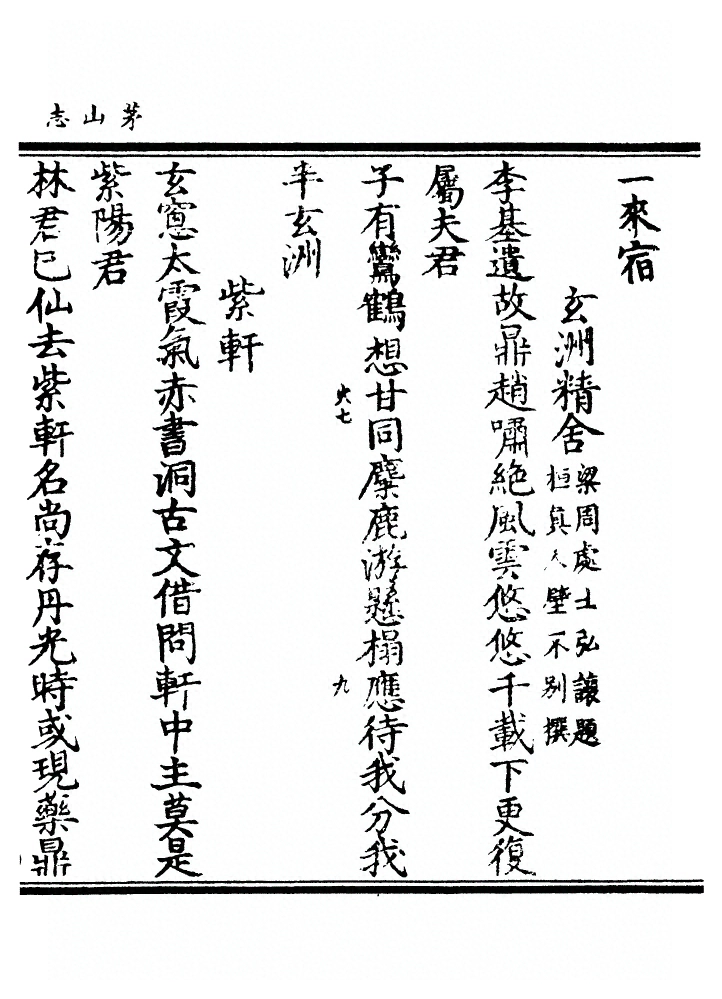 茅山志
一來宿
玄洲精舍
梁周處士弘讓題
桓真人壁不别撰
李基遺故鼎趙嘯絶風雲悠悠千載下更復
屬夫君
子有鸞鶴想甘同麋鹿游懸榻應待我分我
半玄洲
六七
九
紫軒
玄窻太霞氣赤書洞古文借問軒中主莫是
紫陽君
林君已仙去紫軒名尚存丹光時或現藥鼎